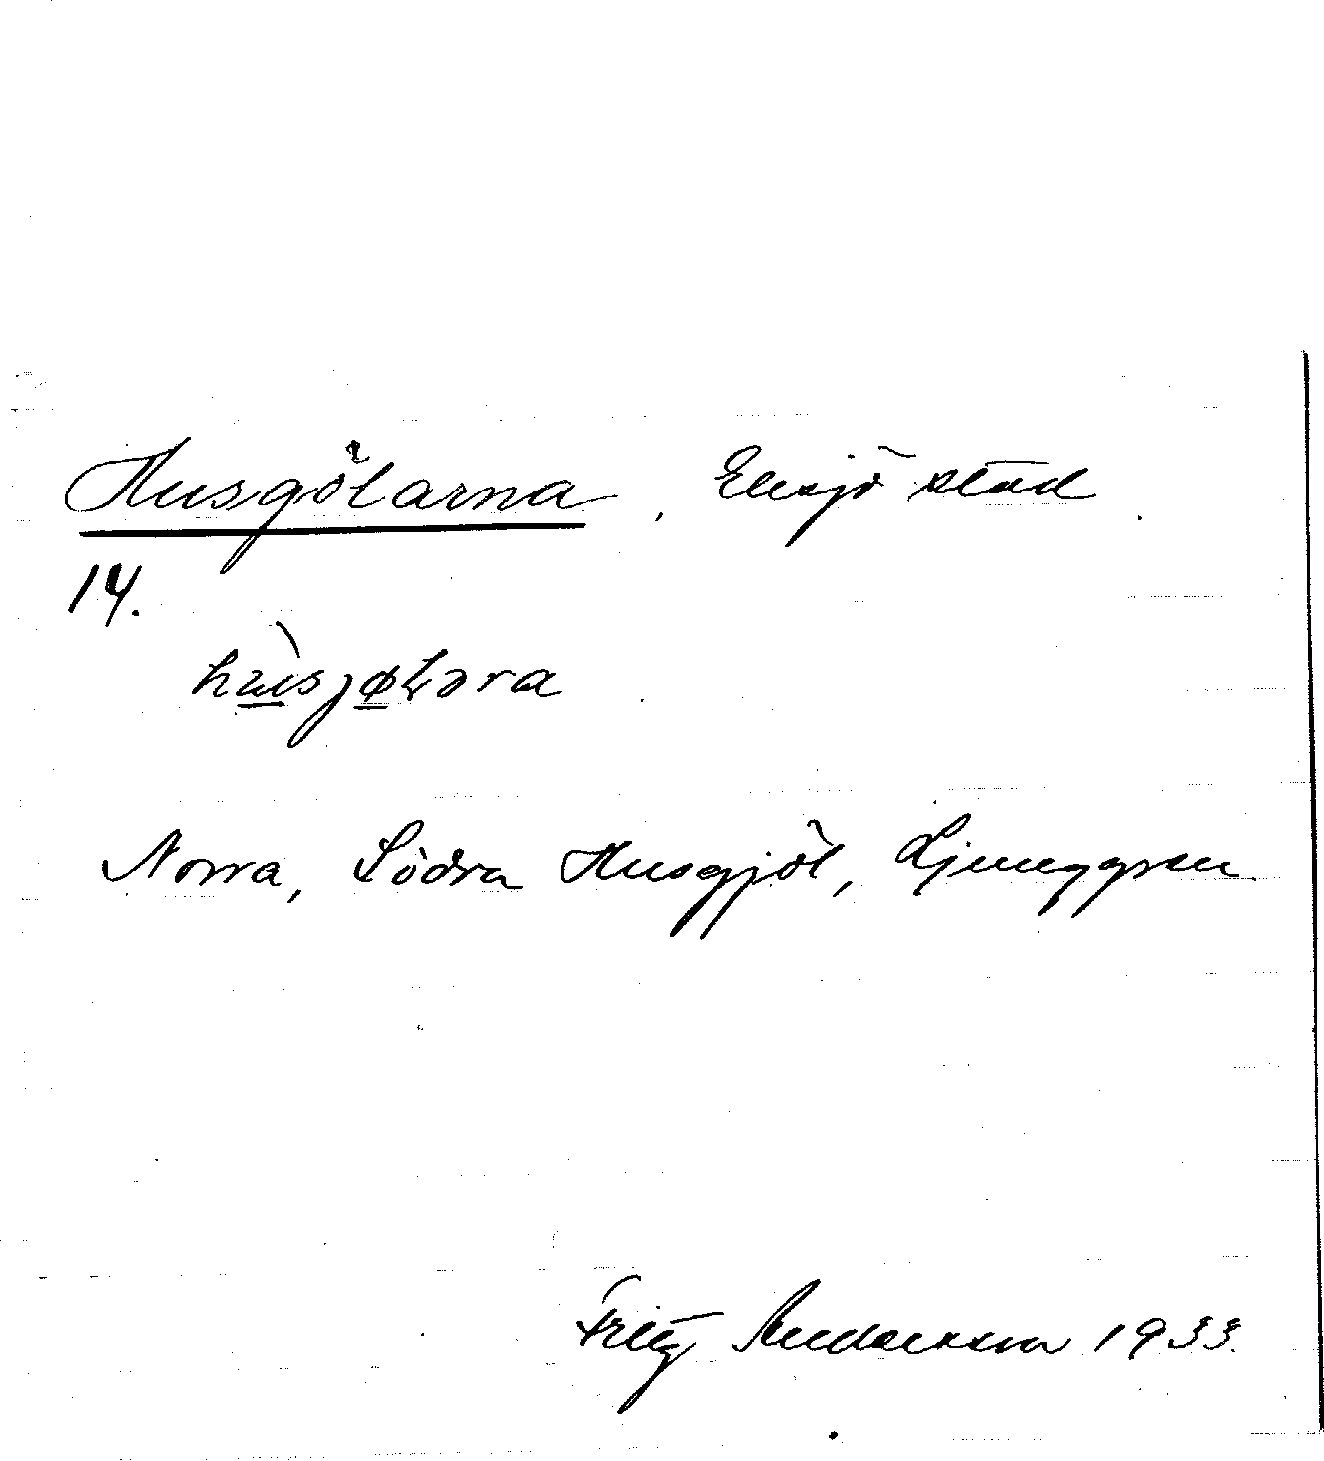 Husgölarna, Eksjö stad.
14.
hùsjøɫɘra
Norra, Södra Husgjöl, Ljunggren
Fritz Andersson 1933.